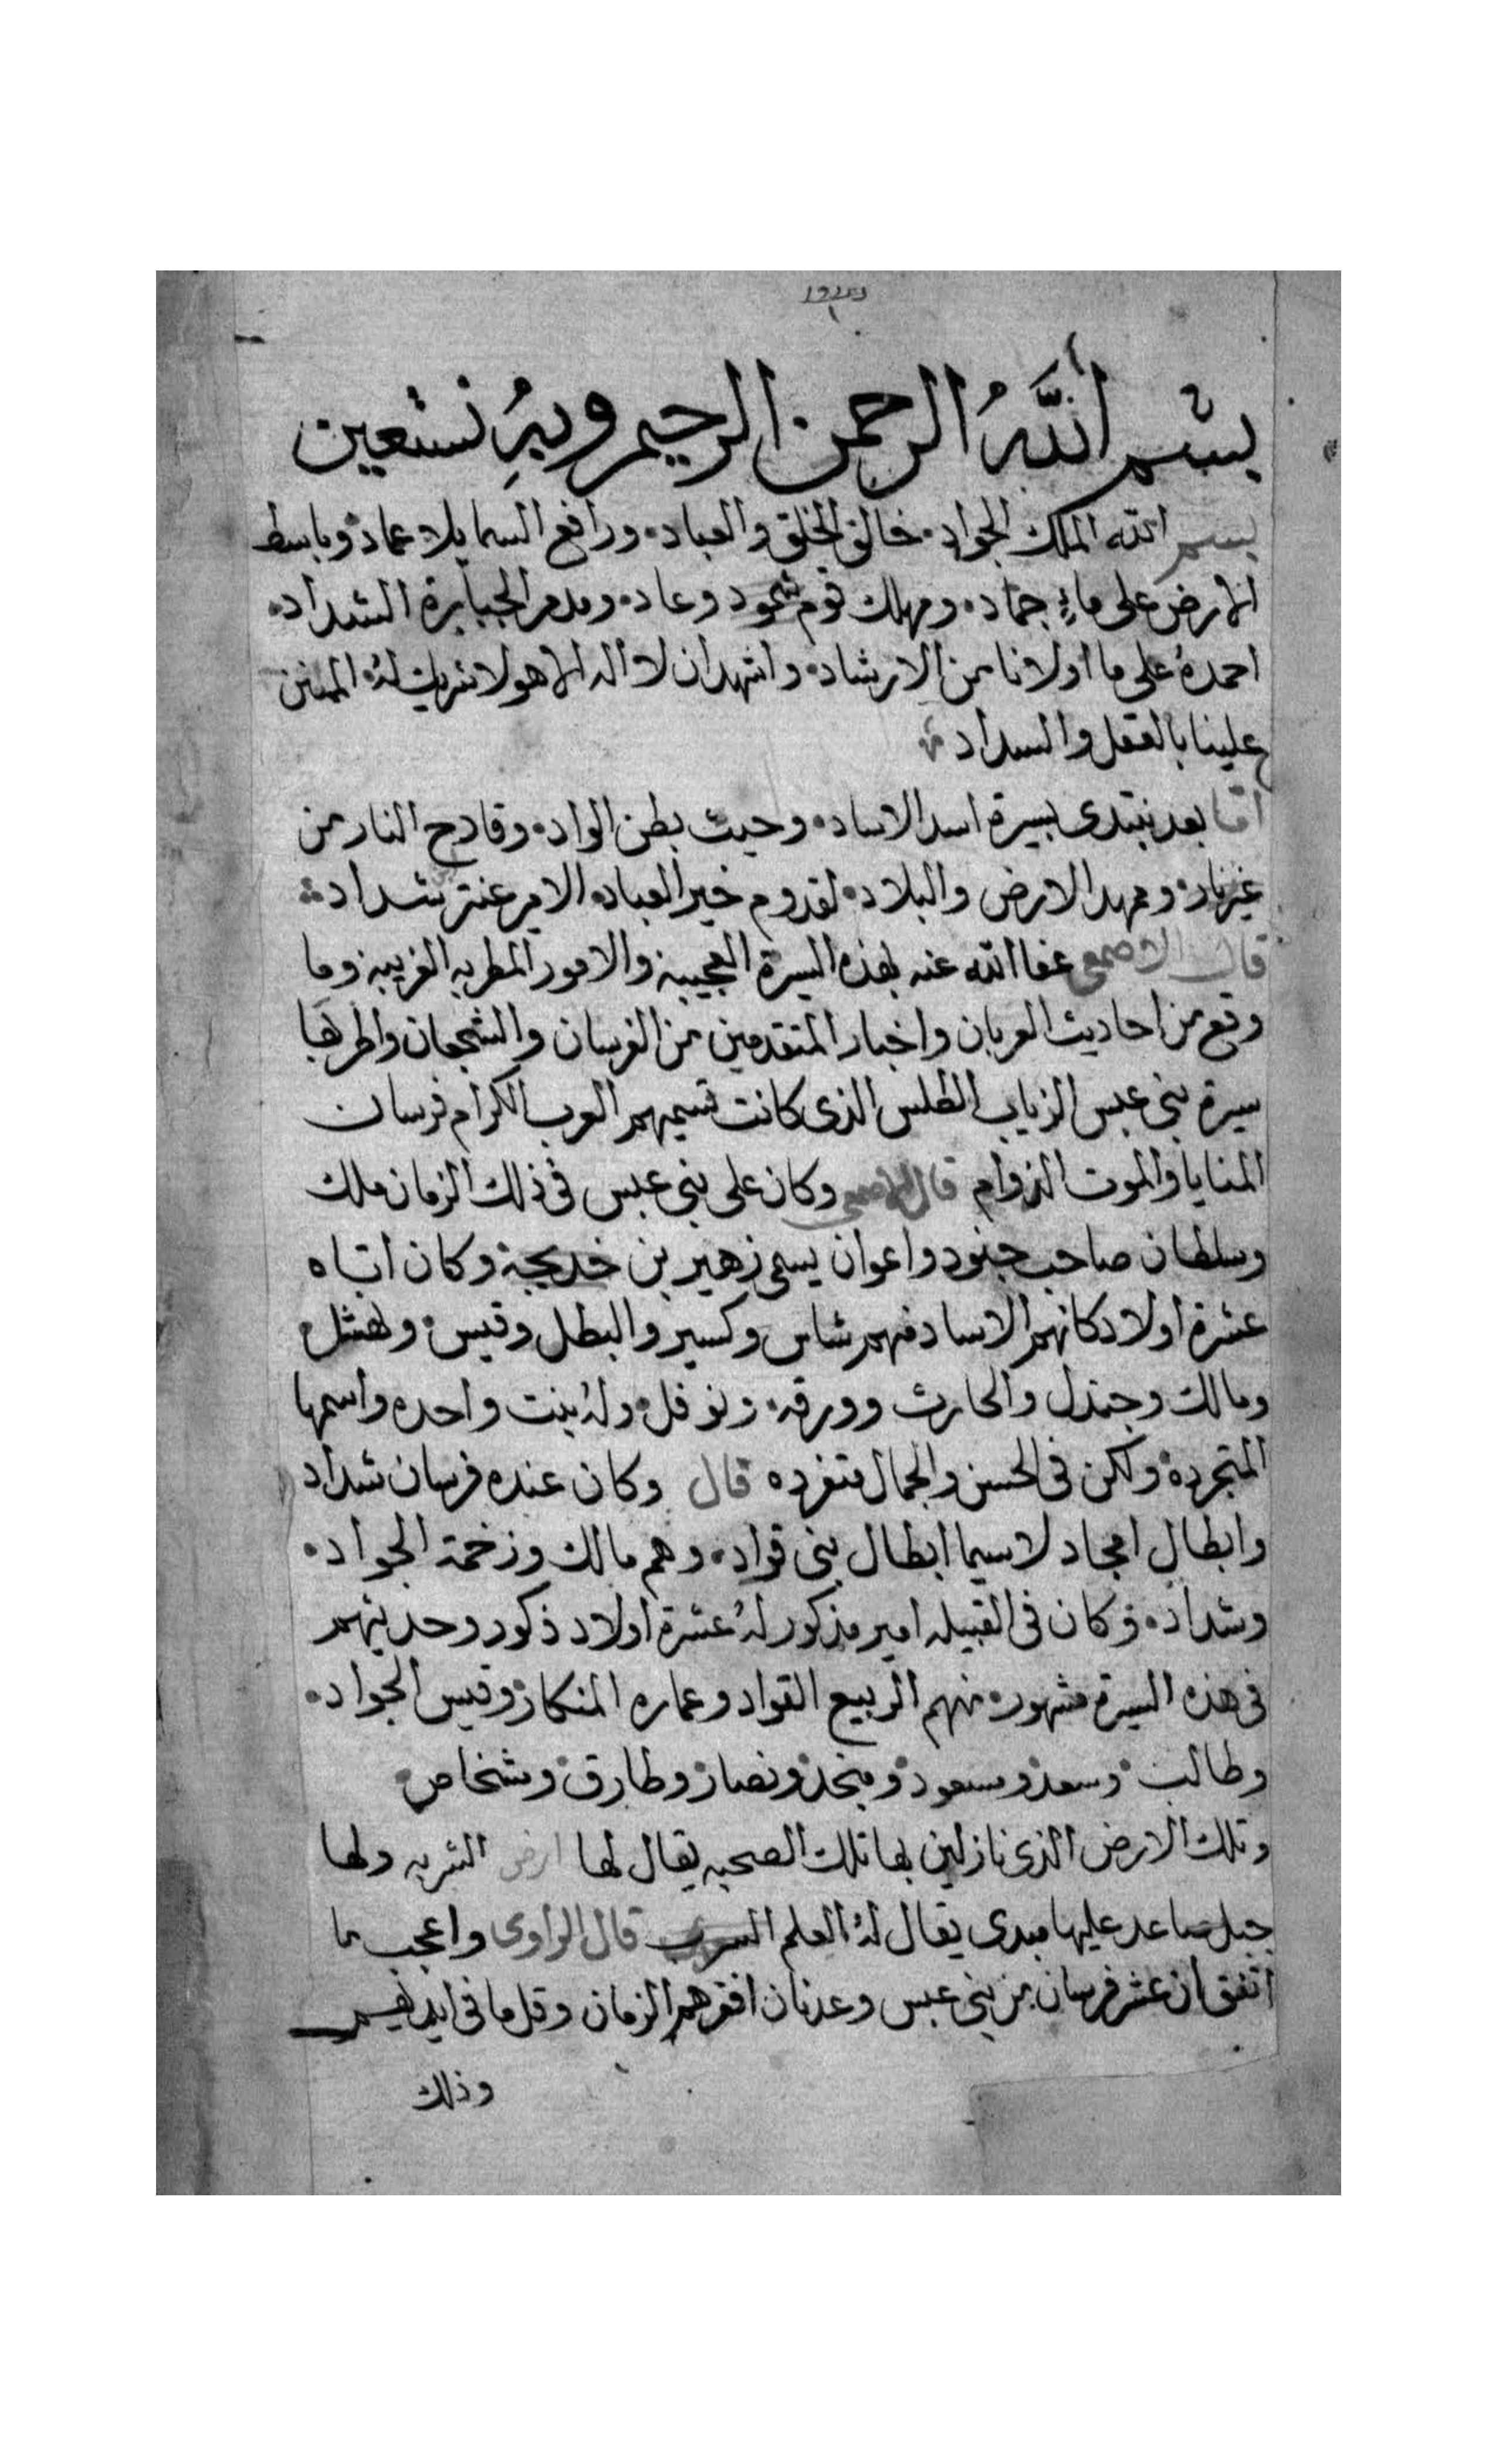 بسم اللهُ الرحمن الرحيم وبهِ نستعين
بسم الله الملك الجواد. خالق الخلق والعباد. ورافع السما بلا عماد وباسط
الارض على ماءٍ جماد. ومهلك قوم ثمود وعاد. ومدمر الجبابرة الشداد.
احمدهُ على ما اولانا من الارشاد. واشهد ان لا اله الا هو لا شريك لهُ. الممنن
علينا بالعقل والسداد
اما بعد نبتدى بسيرة اسد الاساد. وحيث بطن الواد. وقادح النار من
غير ناد. وممهد الارض والبلاد. لقدوم خير العباد. الامير عنتر بن شداد
قال الاصمعى عفا الله عنه بهذه السيرة العجيبة والامور المطربه الغريبه وما
وقع من احاديث العربان واخبار المتقدمين من الفرسان والشجعان واطربها
سيرة بنى عبس الزياب الطلس الذى كانت تسميهم العرب الكرام فرسان
المنايا والموت الزوام قال الاصمعى وكان على بنى عبس فى ذلك الزمان ملك
وسلطان صاحب جنود واعوان يسمى زهير بن خديجة وكان اتاه
عشرة اولاد كانهم الاساد فمهم شاس وكسير والبطل وقيس. ونهشل
ومالك وجندل والحارث وورقه. ونوفل. ولهُ بنت واحده واسمها
المتجردة ولكن فى الحسن والجمال متفرده قال وكان عنده فرسان شداد
وابطال امجاد لا سيما ابطال بنى قواد. وهم مالك وزخمة الجواد.
وشداد. وكان فى القبيله امير مذكور لهُ عشرة اولاد ذكور وحديثهم
فى هذه السيرة مشهور. منهم الربيع القواد وعماره المنكاد وقيس الجواد.
وطالب. وسعد ومسعود ومنجد ونصار وطارق وشخاص
وتلك الارض الذى نازلين بها تلك الصحبه يقال لها ارض الشربه ولها
جبل صاعد عليها مبدى يقال لهُ العلم قال الراوى واعجب ما
اتفق ان عشر فرسان من بنى عبس وعدنان افقرهم الزمان وقل ما فى ايديهم
وذلك